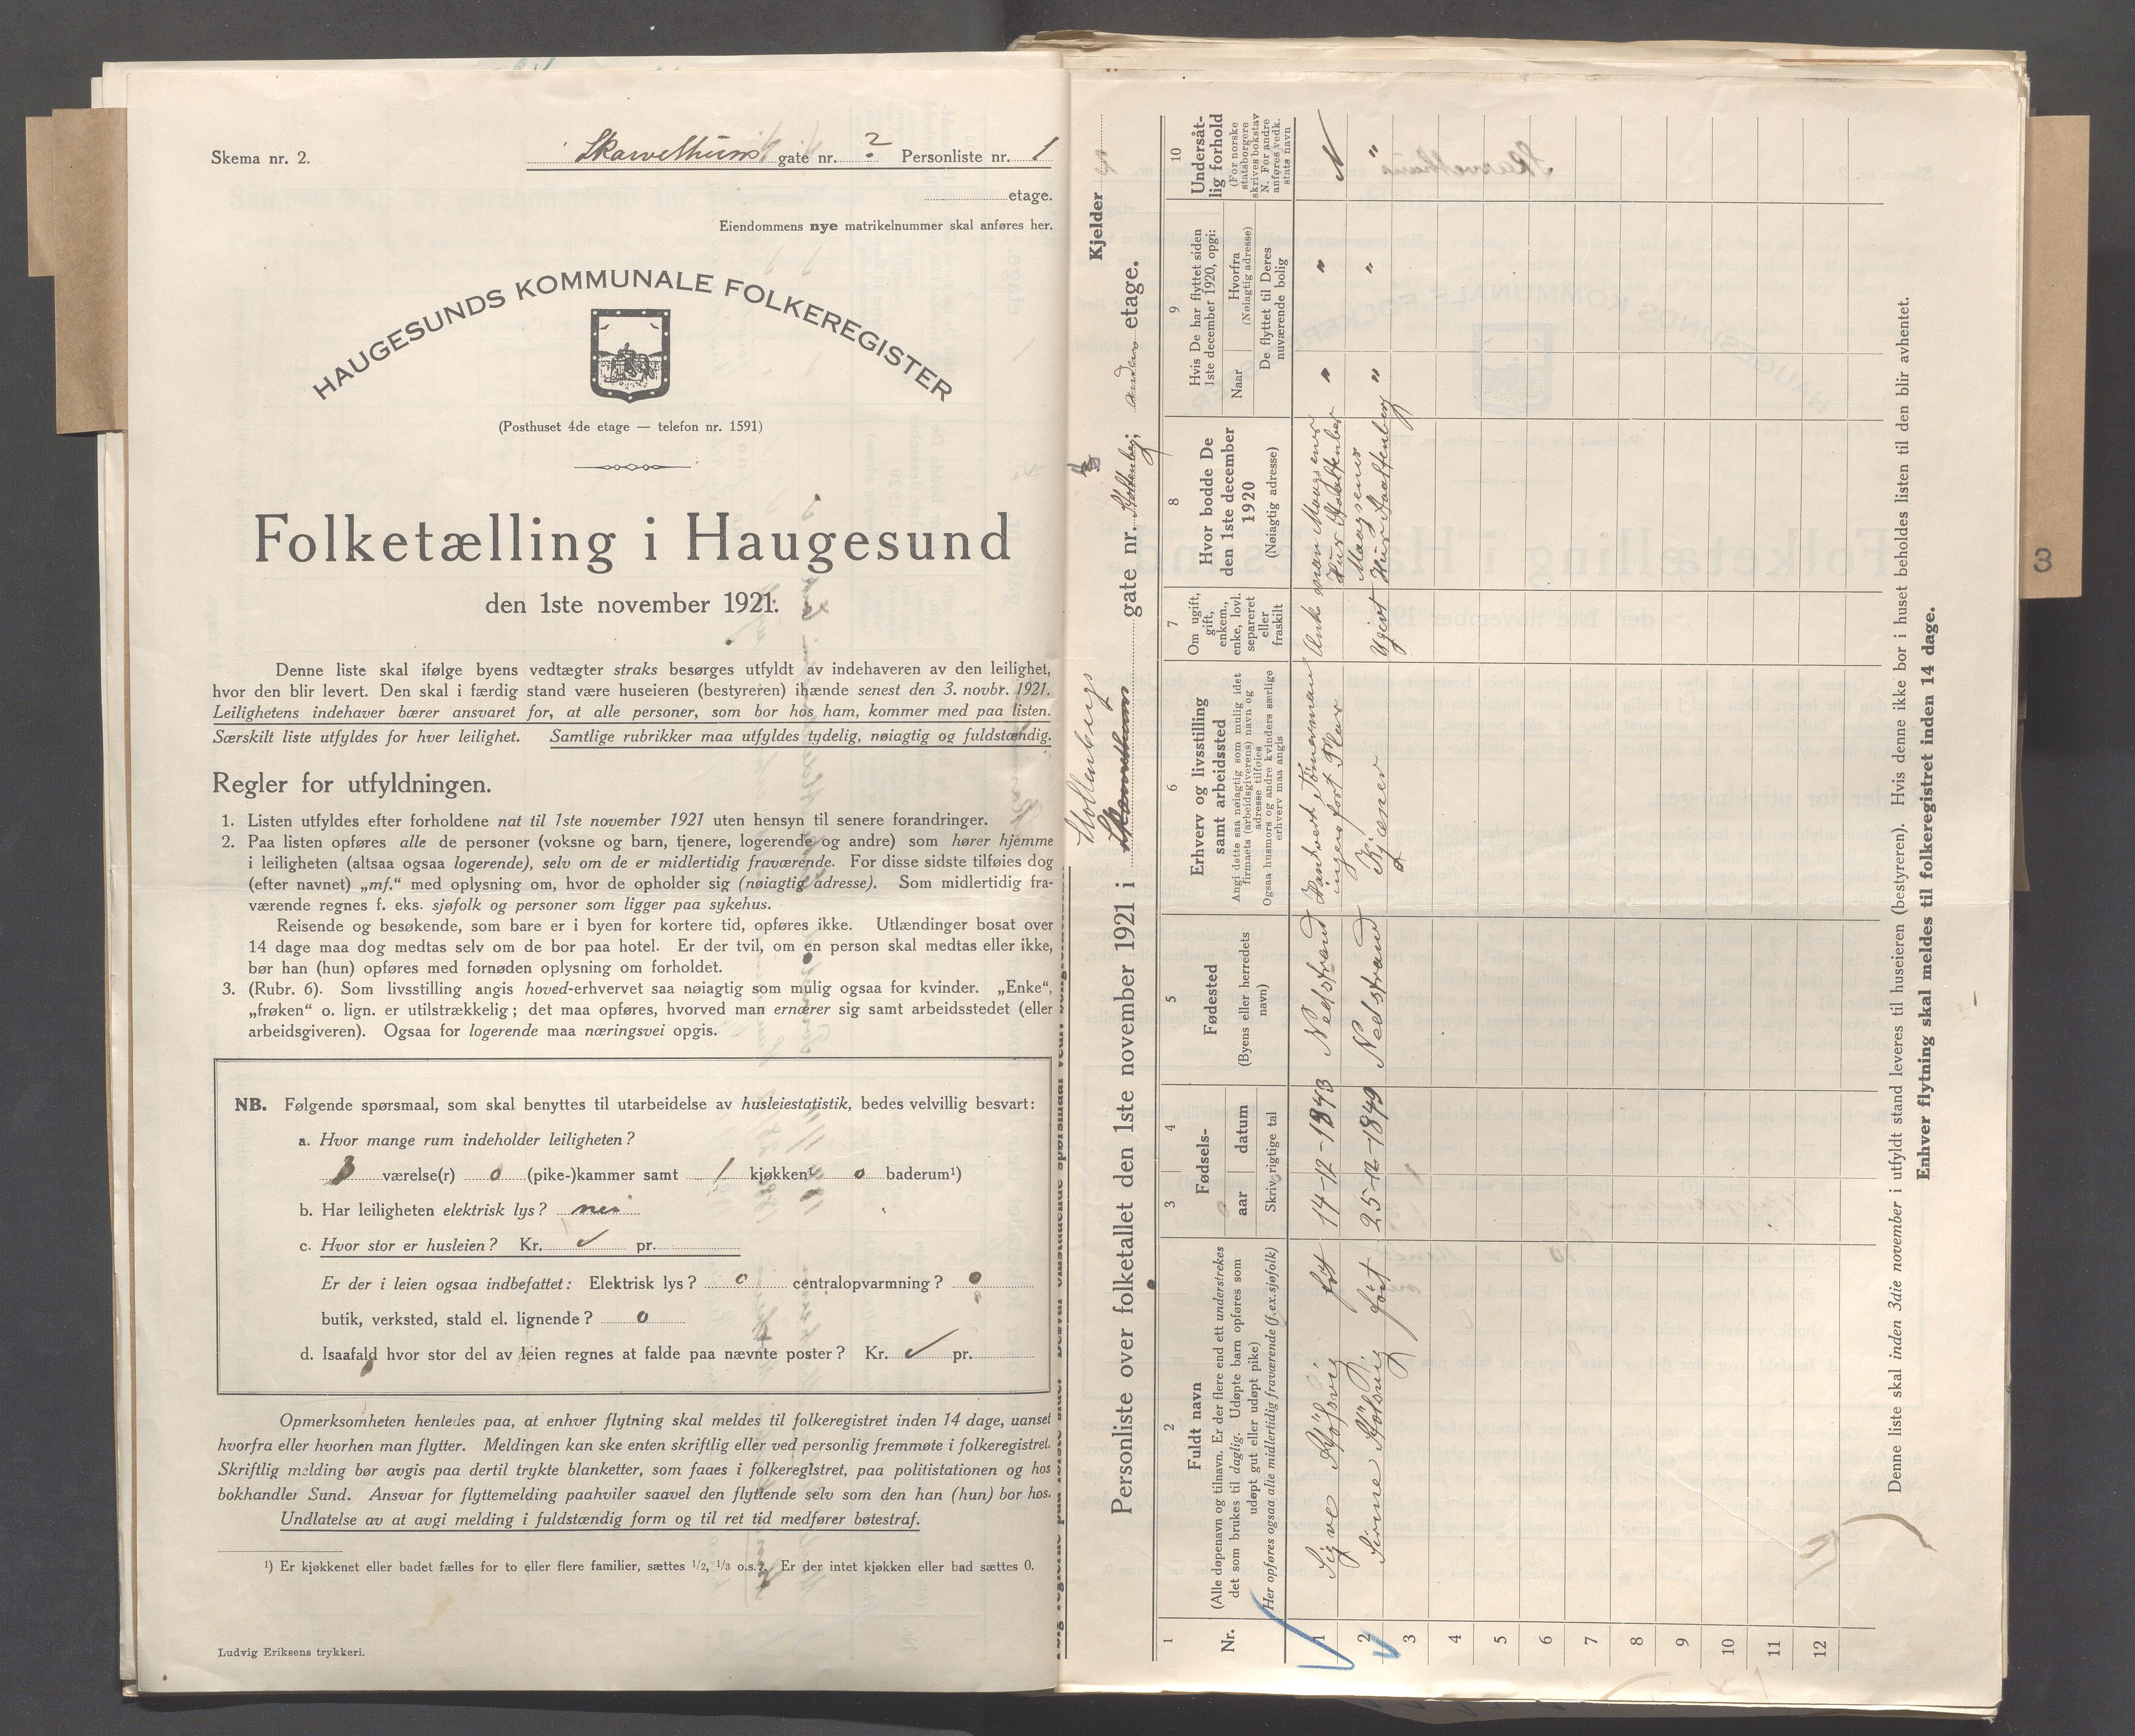 Skema nr. 2.
gate nr. ? Personliste nr. 1
etage.
Eiendommens nye matrikelnummer skal anføres her.
HAUGESUNDS KOMMUNALE FOLKEREGISTER
(Posthuset 4de etage — telefon nr. 1591)
Folketælling i Haugesund
den 1ste november 1921.
Denne liste skal ifølge byens vedtægter straks besørges utfyldt av indehaveren av den leilighet,
hvor den blir levert. Den skal i færdig stand være huseieren (bestyreren) ihænde senest den 3. novbr. 1921.
Leilighetens indehaver bærer ansvaret for, at alle personer, som bor hos ham, kommer med paa listen.
Særskilt liste utfyldes for hver leilighet. Samtlige rubrikker maa utfyldes tydelig, nøiagtig og fuldstændig.
Regler for utfyldningen.
1. Listen utfyldes efter forholdene nat til 1ste november 1921 uten hensyn til senere forandringer.
2. Paa listen opføres alle de personer (voksne og barn, tjenere, logerende og andre) som hører hjemme
i leiligheten (altsaa ogsaa logerende), selv om de er midlertidig fraværende. For disse sidste tilføies dog
(efter navnet) „mf.“ med oplysning om, hvor de opholder sig (nøiagtig adresse). Som midlertidig fra-
værende regnes f. eks. sjøfolk og personer som ligger paa sykehus.
Reisende og besøkende, som bare er i byen for kortere tid, opføres ikke. Utlændinger bosat over
14 dage maa dog medtas selv om de bor paa hotel. Er der tvil, om en person skal medtas eller ikke,
bør han (hun) opføres med fornøden oplysning om forholdet.
3. (Rubr. 6). Som livsstilling angis hoved-erhvervet saa nøiagtig som mulig ogsaa for kvinder. „Enke“,
„frøken“ o. lign. er utilstrækkelig; det maa opføres, hvorved man ernærer sig samt arbeidsstedet (eller
arbeidsgiveren). Ogsaa for logerende maa næringsvei opgis.
NB. Følgende spørsmaal, som skal benyttes til utarbeidelse av husleiestatistik, bedes velvillig besvart:
a. Hvor mange rum indeholder leiligheten?
3 værelse(r) 0 (pike-)kammer samt 1 kjøkken¹ 0 baderum¹)
b. Har leiligheten elektrisk lys? nei
c. Hvor stor er husleien? Kr. pr.
Er der i leien ogsaa indbefattet: Elektrisk lys? 0 centralopvarmning? 0
butik, verksted, stald el. lignende? 0
d. Isaafald hvor stor del av leien regnes at falde paa nævnte poster? Kr. pr.
Opmerksomheten henledes paa, at enhver flytning skal meldes til folkeregistret inden 14 dage, uanset
hvorfra eller hvorhen man flytter. Meldingen kan ske enten skriftlig eller ved personlig fremmøte i folkeregistret.
Skriftlig melding bør avgis paa dertil trykte blanketter, som faaes i folkereglstret, paa politistationen og hos
bokhandler Sund. Ansvar for flyttemelding paahviler saavel den flyttende selv som den han (hun) bor hos.
Undlatelse av at avgi melding i fuldstændig form og til ret tid medfører bøtestraf.
¹) Er kjøkkenet eller badet fælles for to eller flere familier, sættes 1/2, 1/3 o.s.v. Er der intet kjøkken eller bad sættes 0.
Ludvig Eriksens trykkeri.
Kjelder
Personliste over folketallet den 1ste november 1921 i gate nr. etage.
1 2 3 4 5 6 7 8 9 10
Nr.
Fuldt navn
(Alle døpenavn og tilnavn. Er der flere end ett understrekes
det som brukes til daglig. Udøpte barn opføres som
udøpt gut eller udøpt pike)
Her opføres ogsaa alle midlertidig fraværende (f.ex. sjøfolk)
Fødsels-
aar datum
Skriv rigtige tal
Fødested
(Byens eller herredets
navn)
Erhverv og livsstilling
samt arbeidssted
Angi dette saa nøiagtig som mulig idet
firmaets (arbeidsgiverens) navn og
adresse tilføies
Ogsaa husmors og andre kvinders særlige
erhverv maa angis
Om ugift,
gift,
enkem.,
enke, lovl.
separeret
eller
fraskilt
Hvor bodde De
den 1ste december
1920
(Nøiagtig adresse)
Hvis De har flyttet siden
1ste december 1920, opgi:
Naar
Hvorfra
(Nøiagtig adresse)
De flyttet til Deres
nuværende bolig
Undersåt-
lig forhold
(For norske
statsborgere
skrives bokstav
N. For andre
anføres vedk.
stats navn
1 Sigve 14-12-1843 Nedstrand " " N
2 25-12-1849 Nedstrand " " "
3
4
5
6
7
8
9
10
11
12
Denne liste skal inden 3die november i utfyldt stand leveres til huseieren (bestyreren). Hvis denne ikke bor i huset beholdes listen til den blir avhentet.
Enhver flytning skal meldes til folkeregistret inden 14 dage.
3